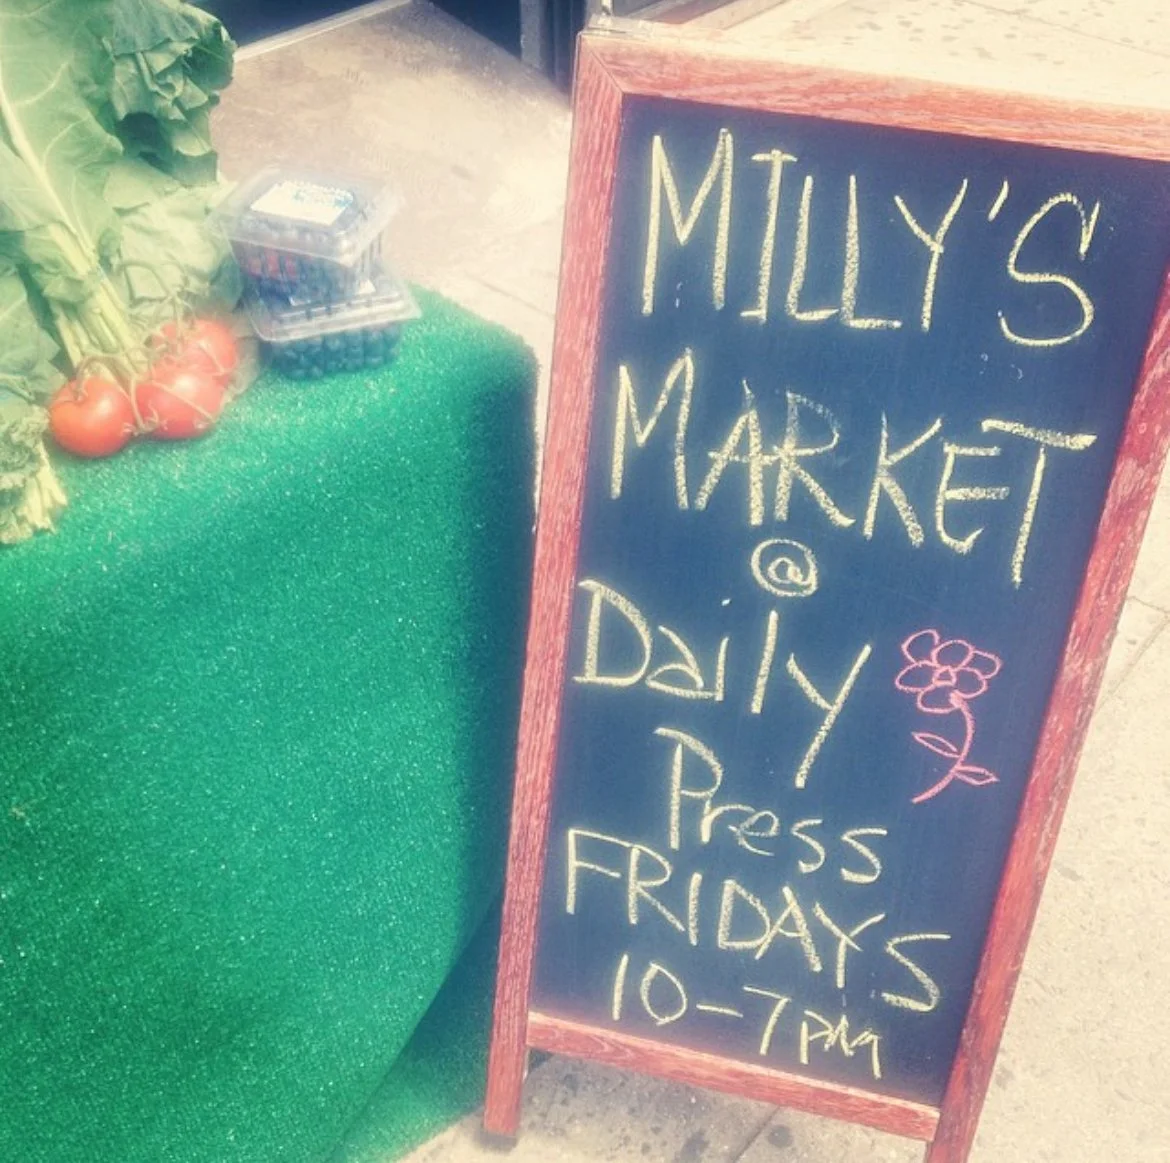 MILLY'S
MARKET
@
Daily
Press
FRIDAYS
10-7PM